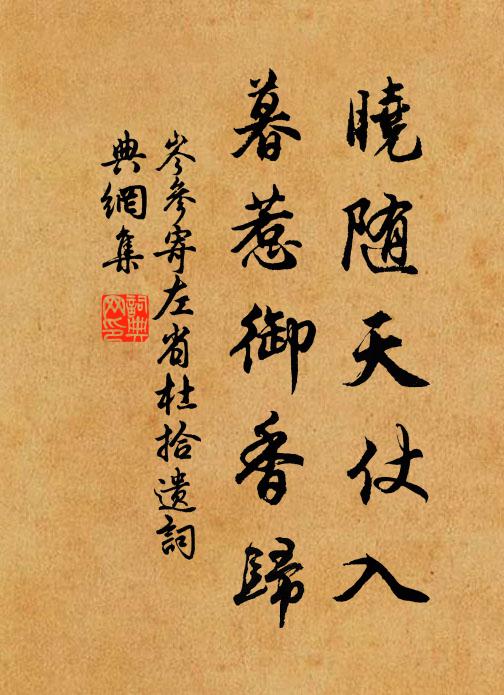 曉随天仗入
暮惹御香歸
岑參寄左省杜拾遺詞
典網集
詞典
网印